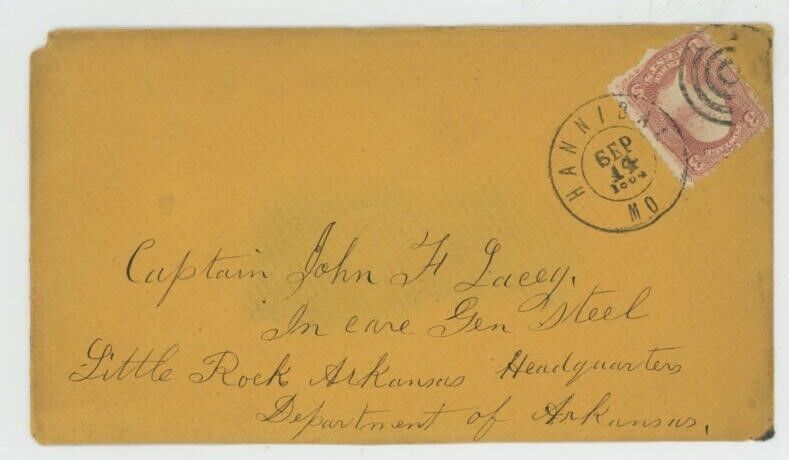 HANNIBAL
SEP
14
1864
MO
Captain John F Lacey,
In care Gen Steel
Little Rock Arkansas Headquarters
Department of Arkansas.